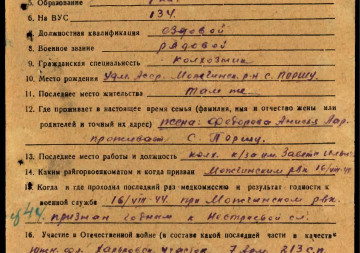 5. Образование
6. На ВУС 134.
7. Должностная квалификация ездовой
8. Военное звание рядовой
9. Гражданская специальность колхозник
10. Место рождения Удм. Можгинск. р-н с. Поршу.
11. Последнее место жительства там же
12. Где проживает в настоящее время семья (фамилия, имя и отчество жены или
родителей и точный их адрес) жена: Федорова Анисья Лар.
проживает С. Поршу.
13. Последнее место работы и должность колх. к/з им.
14. Каким райгорвоенкоматом и когда призван Можгинским рвк 16/VIII-44.
15. Когда и где проходил последний раз медкомиссию и результат годности к
военной службе 16/VIII-44. при Можгинском рвк.
признан годным к нестроевой сл.
16. Участие в Отечественной войне (в составе какой последней части в качестве
213 с.п.